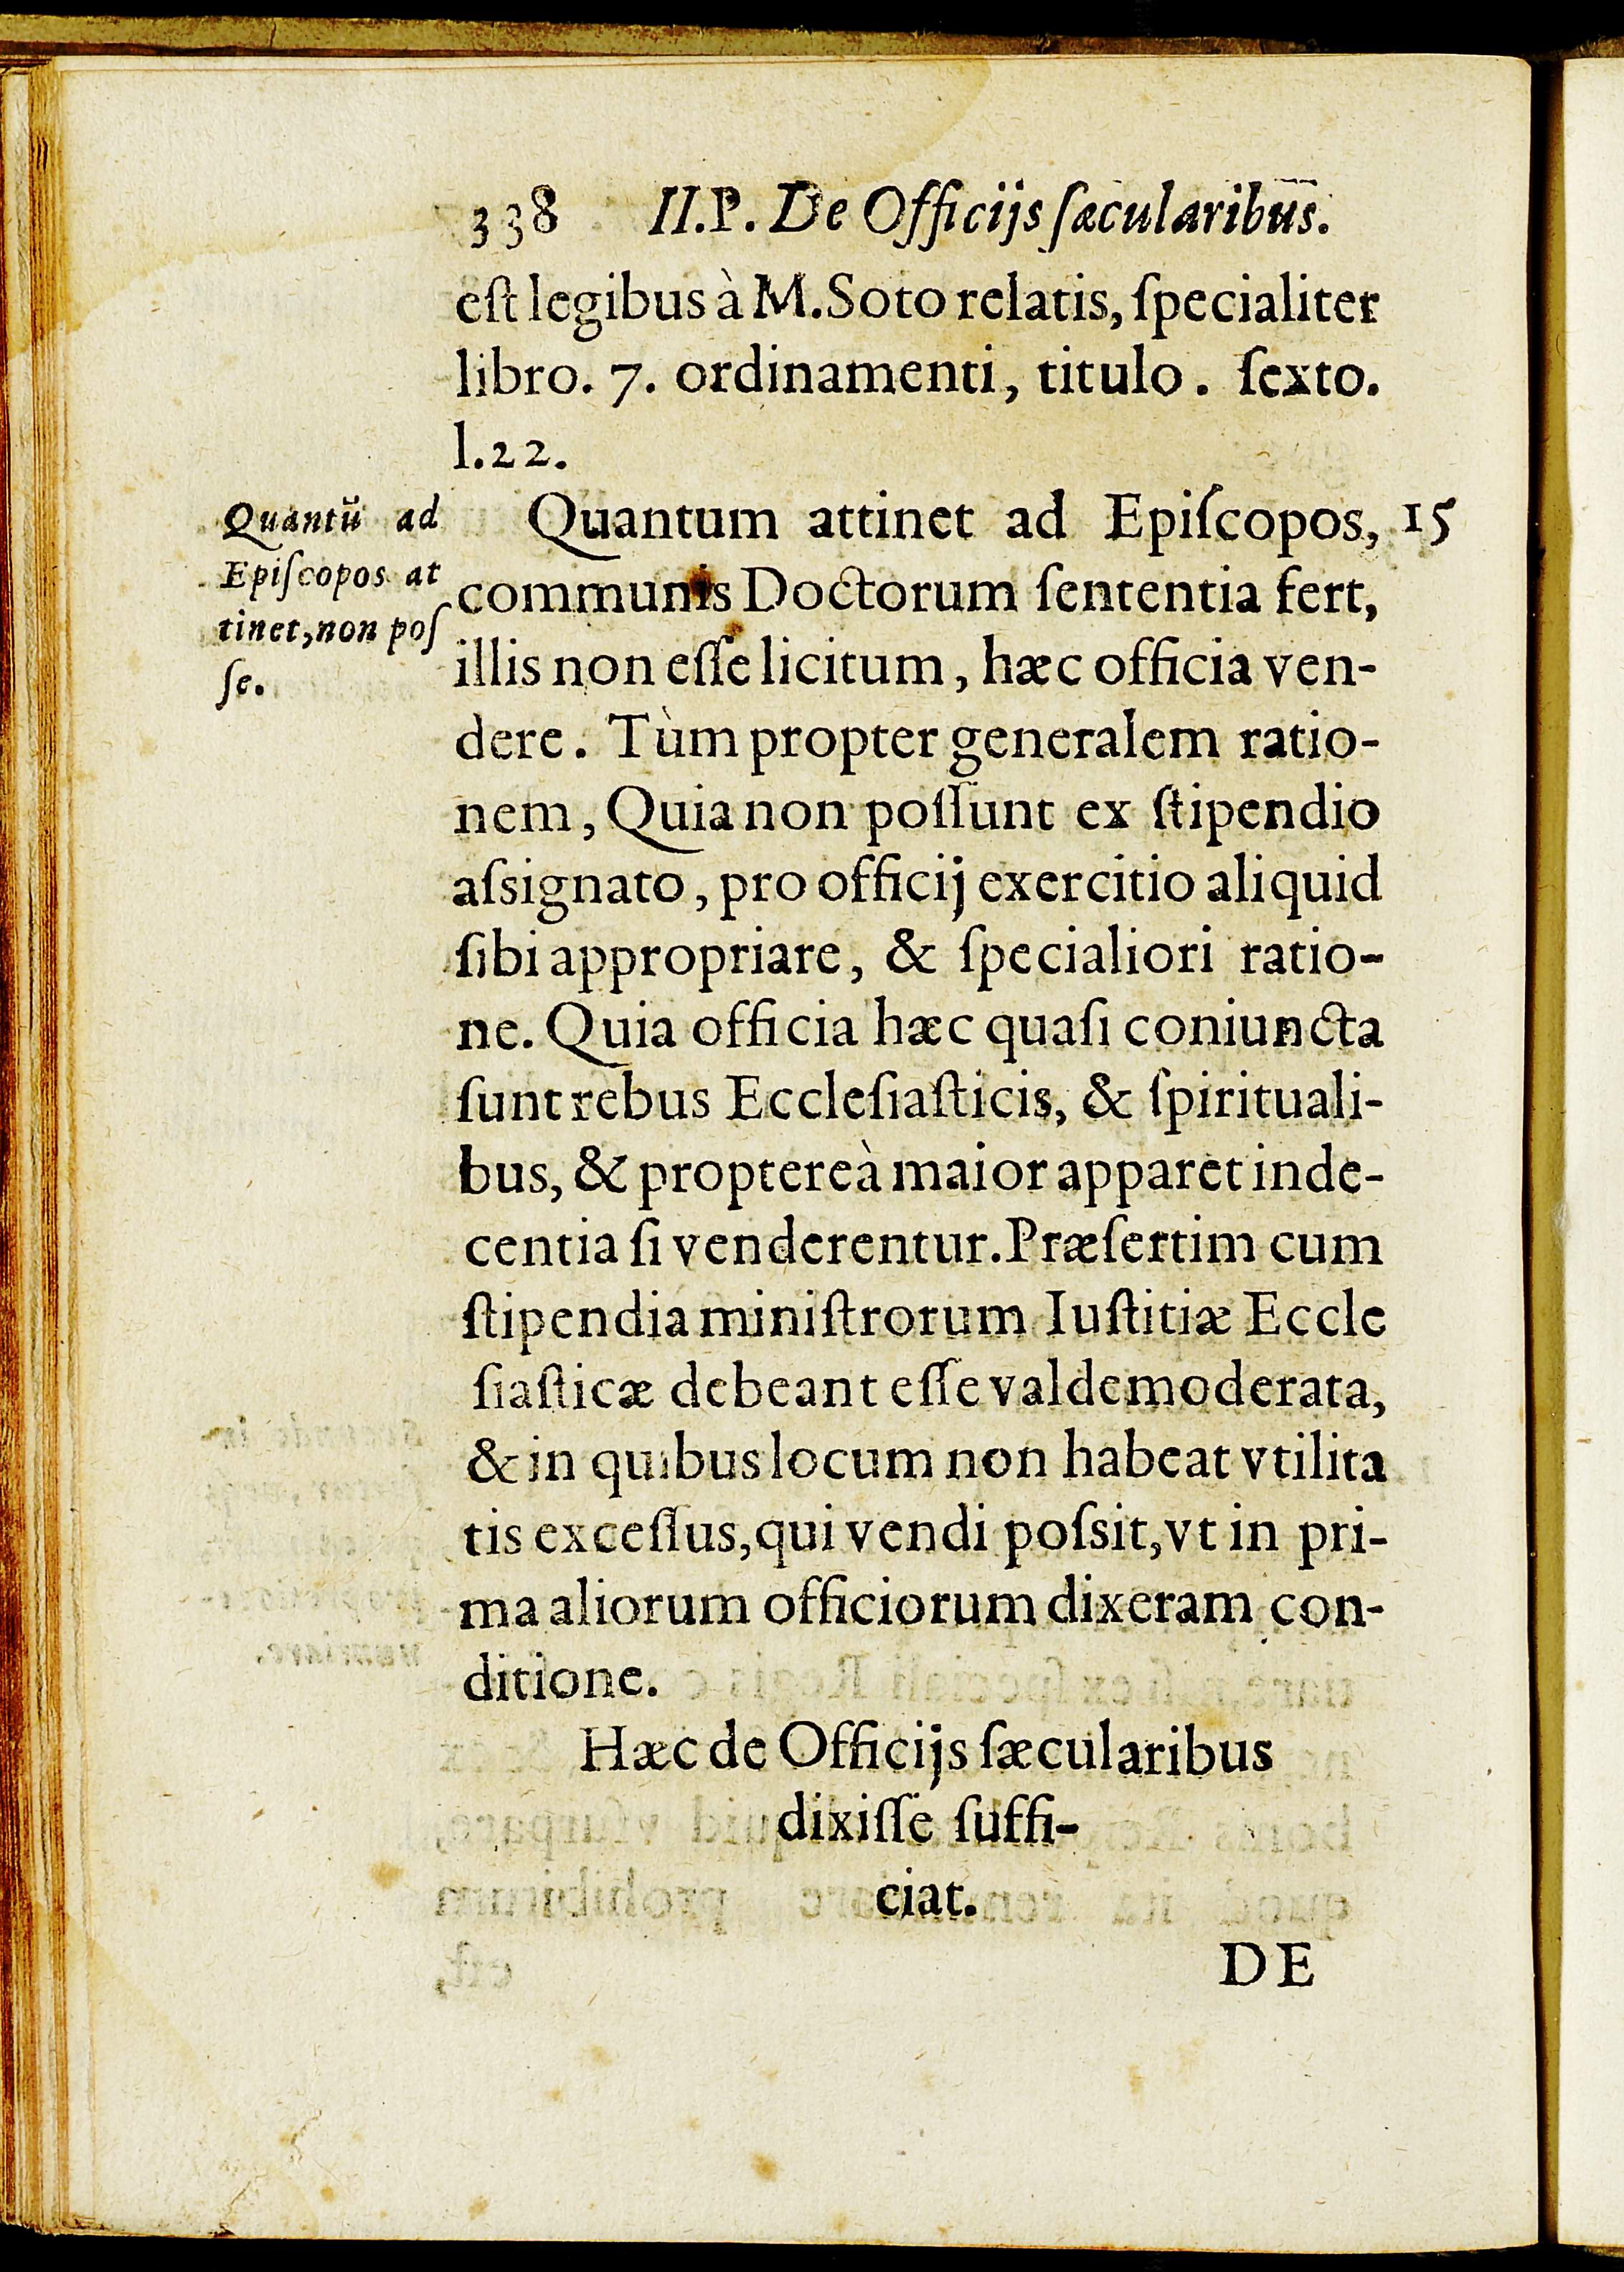 338 II.P. De Officijs ſæcularibus.
eſt legibus à M. Soto relatis, ſpecialiter
libro. 7. ordinamenti, titulo. ſexto.
l.22.
Quantŭ ad
Epiſcopos at
tinet, non poſ
ſe.
Quantum attinet ad Epiſcopos, 15
communis Doctorum ſententia fert,
illis non eſſe licitum, hæc officia ven-
dere. Tùm propter generalem ratio-
nem, Quia non poſſunt ex ſtipendio
aſsignato, pro officij exercitio aliquid
ſibi appropriare, & ſpecialiori ratio-
ne. Quia officia hæc quaſi coniuncta
ſunt rebus Eccleſiaſticis, & ſpirituali-
bus, & proptereà maior apparet inde-
centia ſi venderentur. Præſertim cum
ſtipendia miniſtrorum Iuſtitiæ Eccle
ſiaſticæ debeant eſſe valde moderata,
& in quibus locum non habeat vtilita
tis exceſſus, qui vendi poſsit, vt in pri-
ma aliorum officiorum dixeram con-
ditione.
Hæc de Officijs ſæcularibus
dixiſſe ſuffi-
ciat.
DE